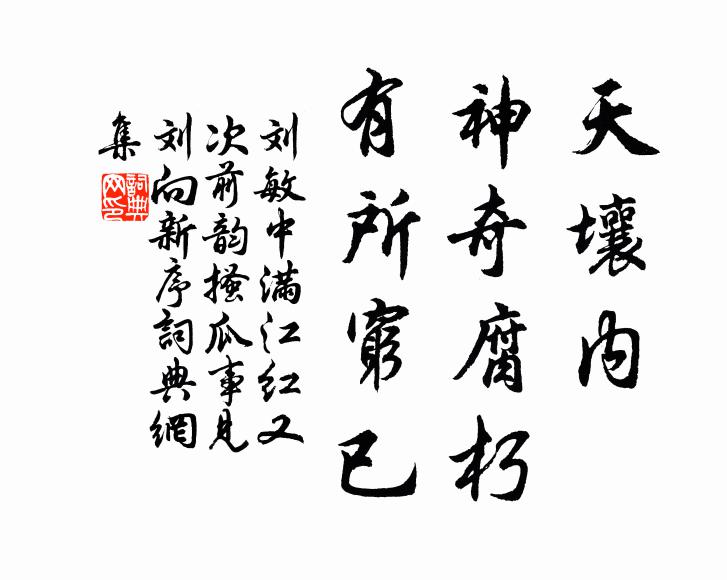 天壤内
神奇腐朽
有所窮已
刘敏中满江红又
次前韵搔瓜事見
刘向新序詞典網
集
詞典
网印